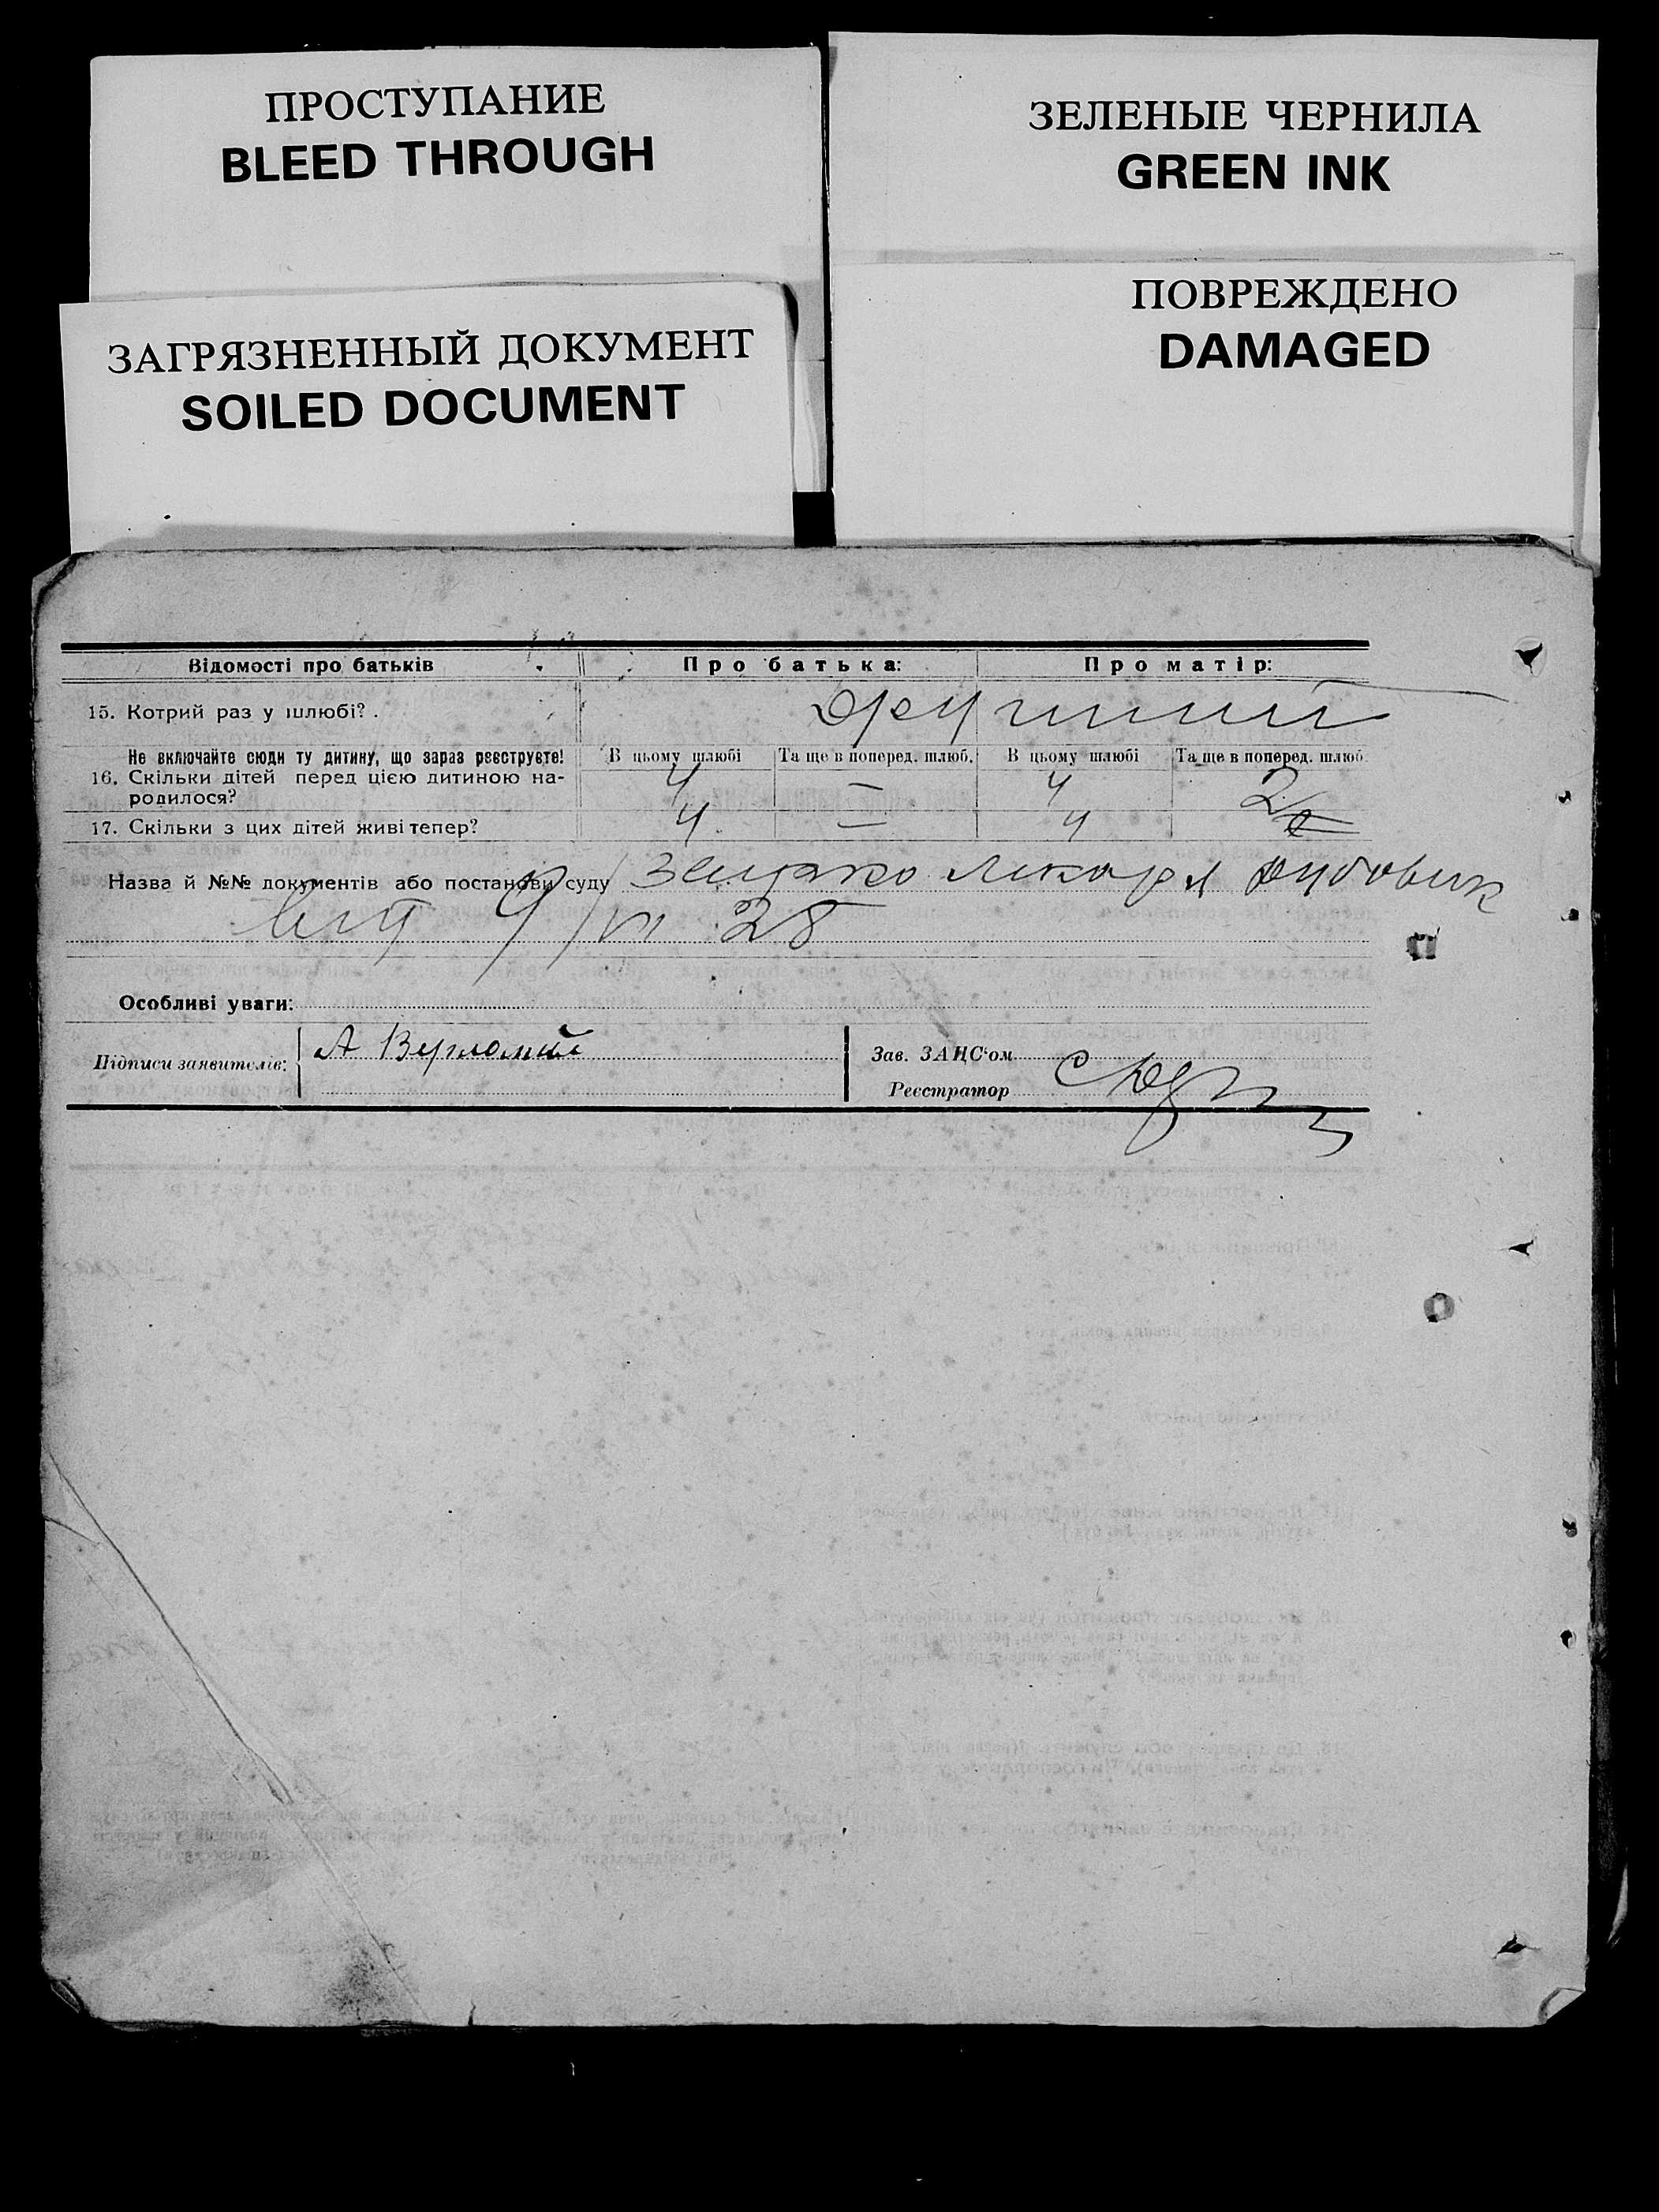 ПРОСТУПАНИЕ
BLEED THROUGH
ЗЕЛЕНЫЕ ЧЕРНИЛА
GREEN INK
ЗАГРЯЗНЕННЫЙ ДОКУМЕНТ
SOILED DOCUMENT
ПОВРЕЖДЕНО
DAMAGED
Відомості про батьків Про батька: Про матір:
15. Котрий раз у шлюбі?
Не включайте сюди ту дитину, що зараз реєструєте! В цьому шлюбі Та ще в поперед. шлюб. В цьому шлюбі Та ще в поперед. шлюб.
16. Скільки дітей перед цією дитиною на-
родилося? 4 — 4 2
17. Скільки з цих дітей живі тепер? 4 — 4
Назва й №№ документів або постанови суду лікаря
9/VI 28
Особливі уваги:
Підписи заявителів: А
Зав. ЗАЦС'ом
Реєстратор